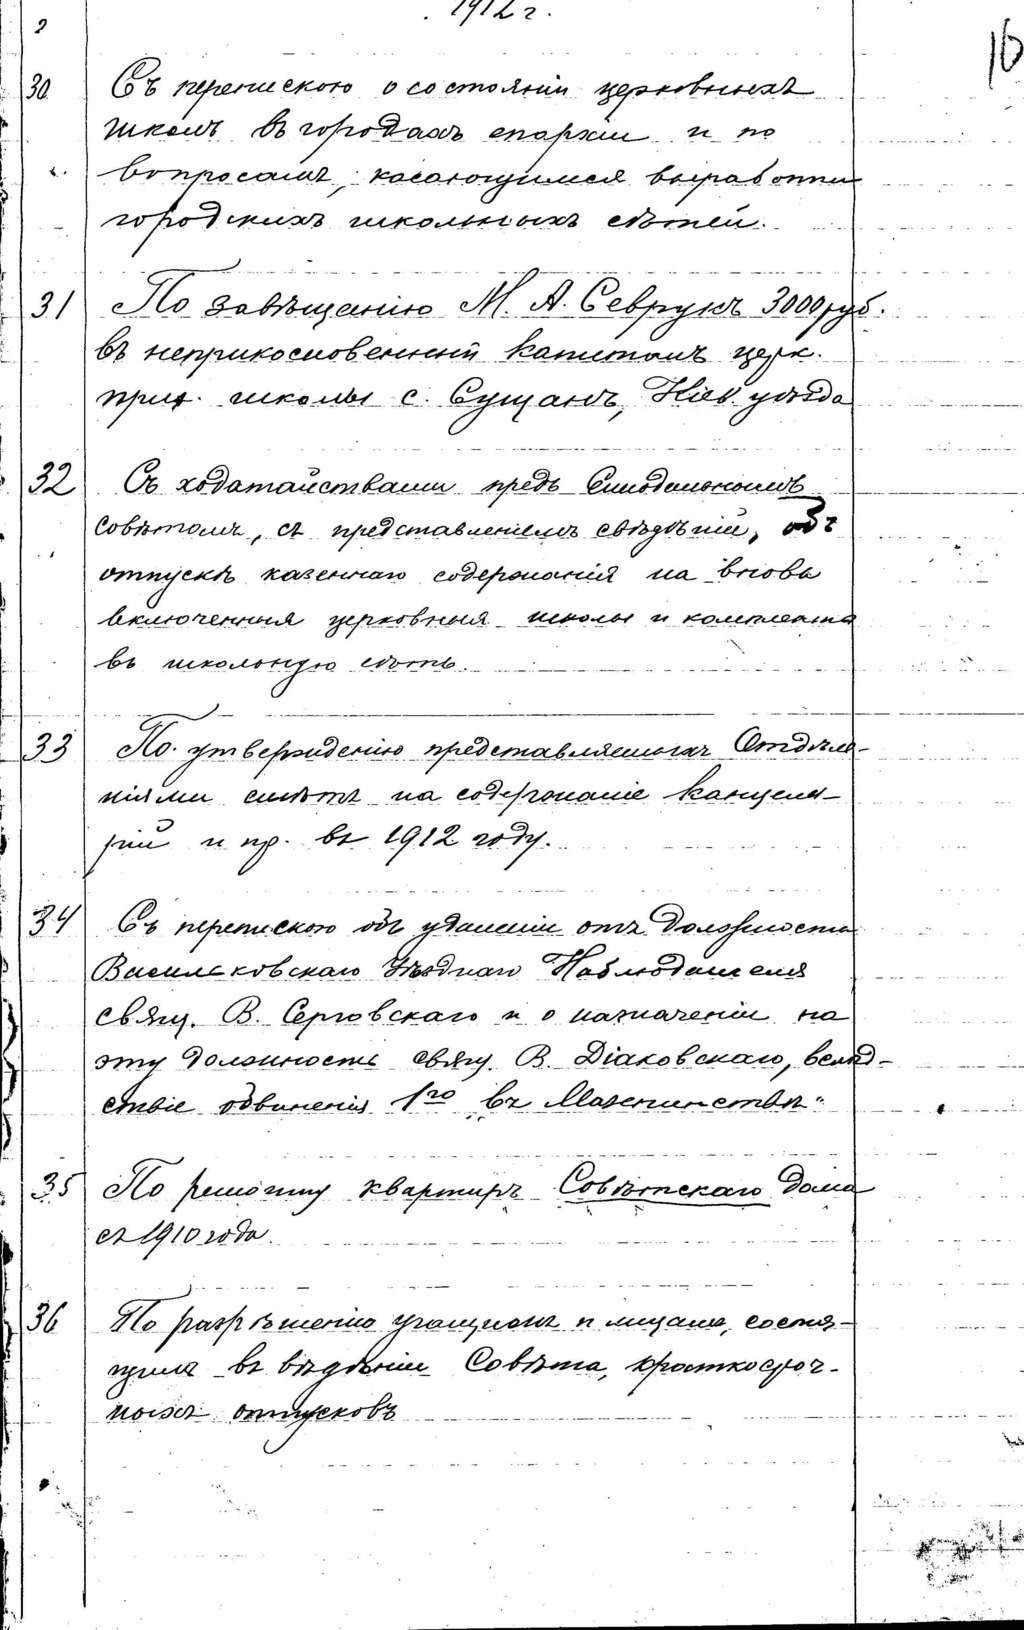 1912 г.
2
16
30 Съ перепискою о состояніи церковныхъ
школъ въ городахъ епархіи и по
вопросамъ, касающимся выработки
городскихъ школьныхъ сѣтей.
31 По завѣщанію М. А. Севрукъ 3000 руб.
въ неприкосновенный капиталъ церк.
прих. школы с. Сущанъ, Кіев. уѣзда
32 Съ ходатайствами предъ Синодальнымъ
Совѣтомъ, съ представленіемъ свѣдѣній, объ
отпускѣ казеннаго содержанія на вновь
включенныя церковныя школы и комплекта
въ школьную сѣть.
33 По утвержденію представляемыхъ Отдѣле-
ніями смѣтъ на содержаніе канцеля-
рій и пр. въ 1912 году.
34 Съ перепискою объ удаленіи отъ должности
Васильковскаго Уѣзднаго Наблюдателя
свящ. В. Серговскаго и о назначеніи на
эту должность свящ. В. Діаковскаго, вслѣд-
ствіе обвиненія 1го въ Мазепинствѣ.
35 По ремонту квартиръ Совѣтскаго дома
съ 1910 года.
36 По разрѣшенію учащимъ и лицамъ, состоя-
щимъ въ вѣдѣніи Совѣта, краткосроч-
ныхъ отпусковъ